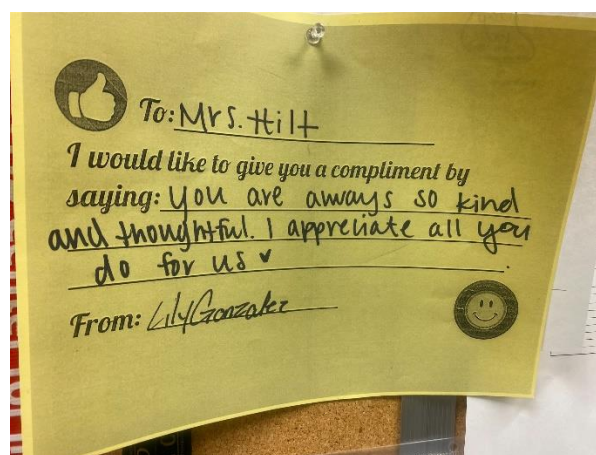 To: Mrs. Hilt
I would like to give you a compliment by
saying: you are always so kind
and thoughtful. I appreciate all you
do for us
From: Lily Gonzalez